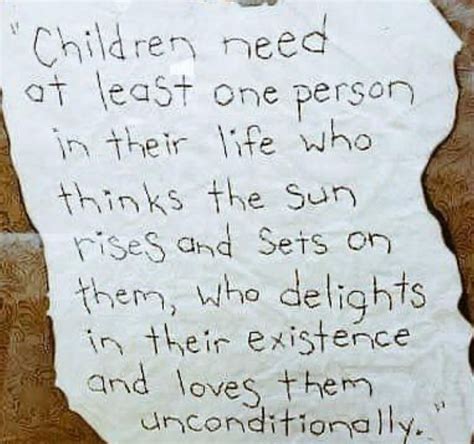 "Children need
at least one person
in their life who
thinks the sun
rises and sets on
them, who delights
in their existence
and loves them
unconditionally."